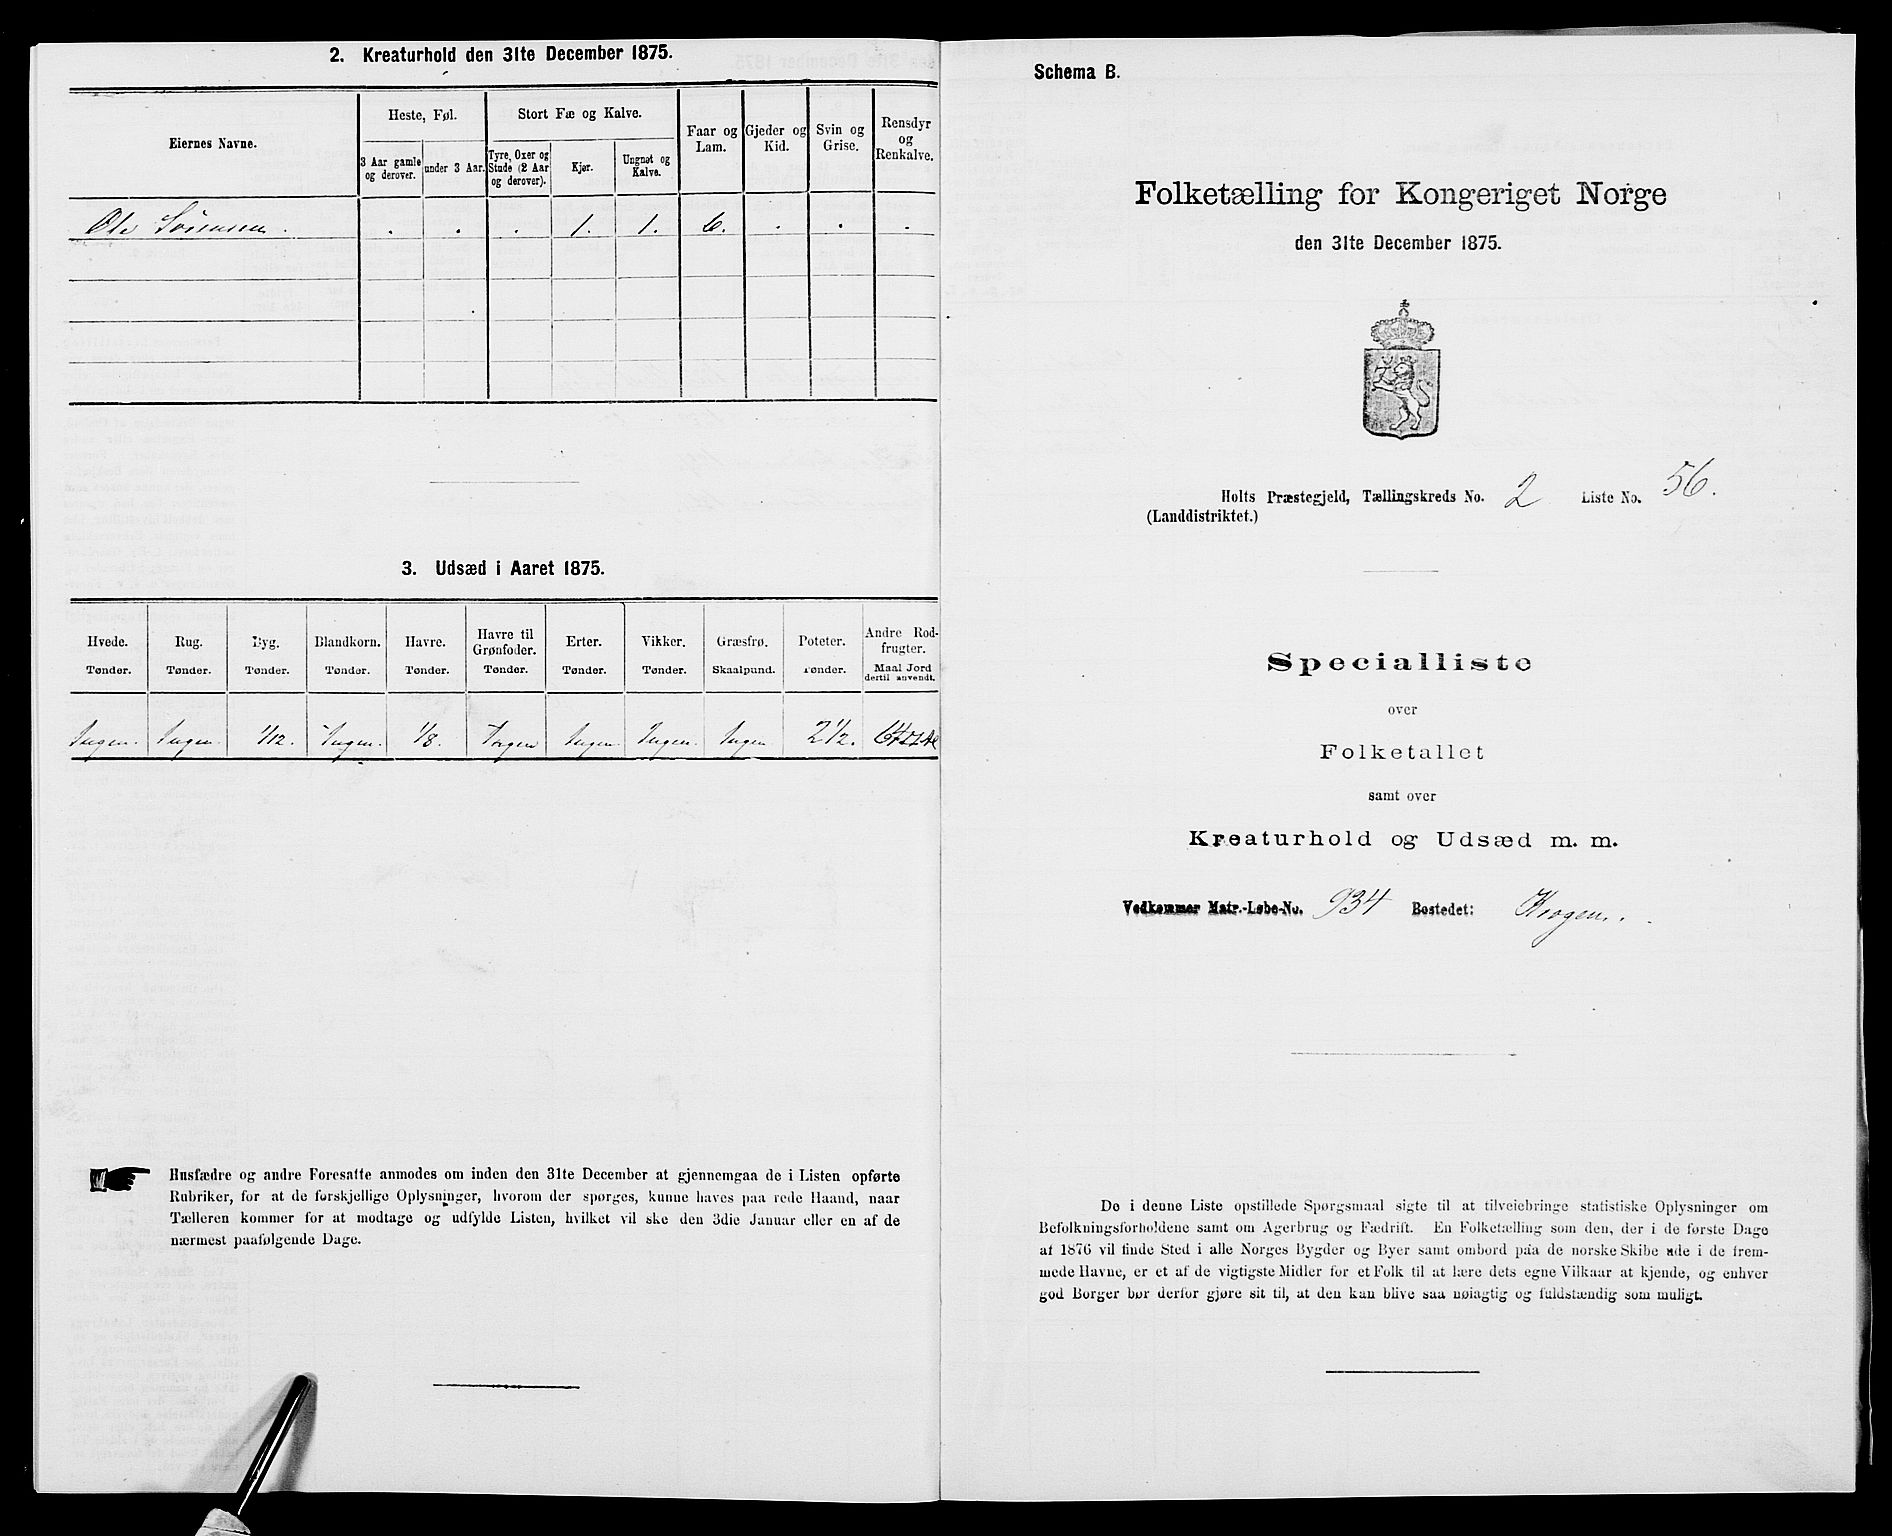 2. Kreaturhold den 31te December 1875.
Eiernes Navne.
Heste, Føl.
Stort Fæ og Kalve.
Faar og Lam.
Gjeder og Kid.
Svin og Grise.
Rensdyr og Renkalve.
3 Aar gamle og derover.
under 3 Aar.
Tyre, Oxer og Stude (2 Aar og derover).
Kjør.
Ungnøt og Kalve.
Ole Sørensen . . . . 1. 1. 6. . . .
3. Udsæd i Aaret 1875.
Hvede. Rug. Byg. Blandkorn. Havre. Havre til Grønfoder. Erter. Vikker. Græsfrø. Poteter. Andre Rodfrugter.
Tønder. Tønder. Tønder. Tønder. Tønder. Tønder. Tønder. Tønder. Skaalpund. Tønder. Maal Jord dertil anvendt.
Ingen. Ingen. 1/12. Ingen. 1/8. Ingen Ingen. Ingen. Ingen 2 1/2.
Husfædre og andre Foresatte anmodes om inden den 31te December at gjennemgaa de i Listen opførte
Rubriker, for at de forskjellige Oplysninger, hvorom der spørges, kunne haves paa rede Haand, naar
Tælleren kommer for at modtage og udfylde Listen, hvilket vil ske den 3die Januar eller en af de
nærmest paafølgende Dage.
Schema B.
Folketælling for Kongeriget Norge
den 31te December 1875.
Holts Præstegjeld, Tællingskreds No. 2 Liste No. 56.
(Landdistriktet.)
Specialliste
over
Folketallet
samt over
Kreaturhold og Udsæd m. m.
Vedkommer Matr.-Løbe-No. 934 Bostedet: Krogen.
De i denne Liste opstillede Spørgsmaal sigte til at tilveiebringe statistiske Oplysninger om
Befolkningsforholdene samt om Agerbrug og Fædrift. En Folketælling som den, der i de første Dage
af 1876 vil finde Sted i alle Norges Bygder og Byer samt ombord paa de norske Skibe ude i de frem-
mede Havne, er et af de vigtigste Midler for et Folk til at lære dets egne Vilkaar at kjende, og enhver
god Borger bør derfor gjøre sit til, at den kan blive saa nøiagtig og fuldstændig som muligt.